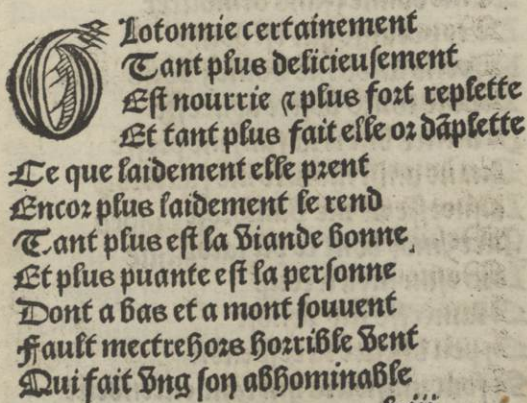 Glotonnie certainement
Tant plus delicieusement
Est nourrie ⁊ plus fort replette
Et tant plus fait elle or dãplette
Ce que laidement elle prent
Encor plus laidement le rend
Tant plus est la viande bonne,
Et plus puante est la personne
Dont a bas et a mont souuent
Fault mectrehors horrible vent
Qui fait vng son abhominable